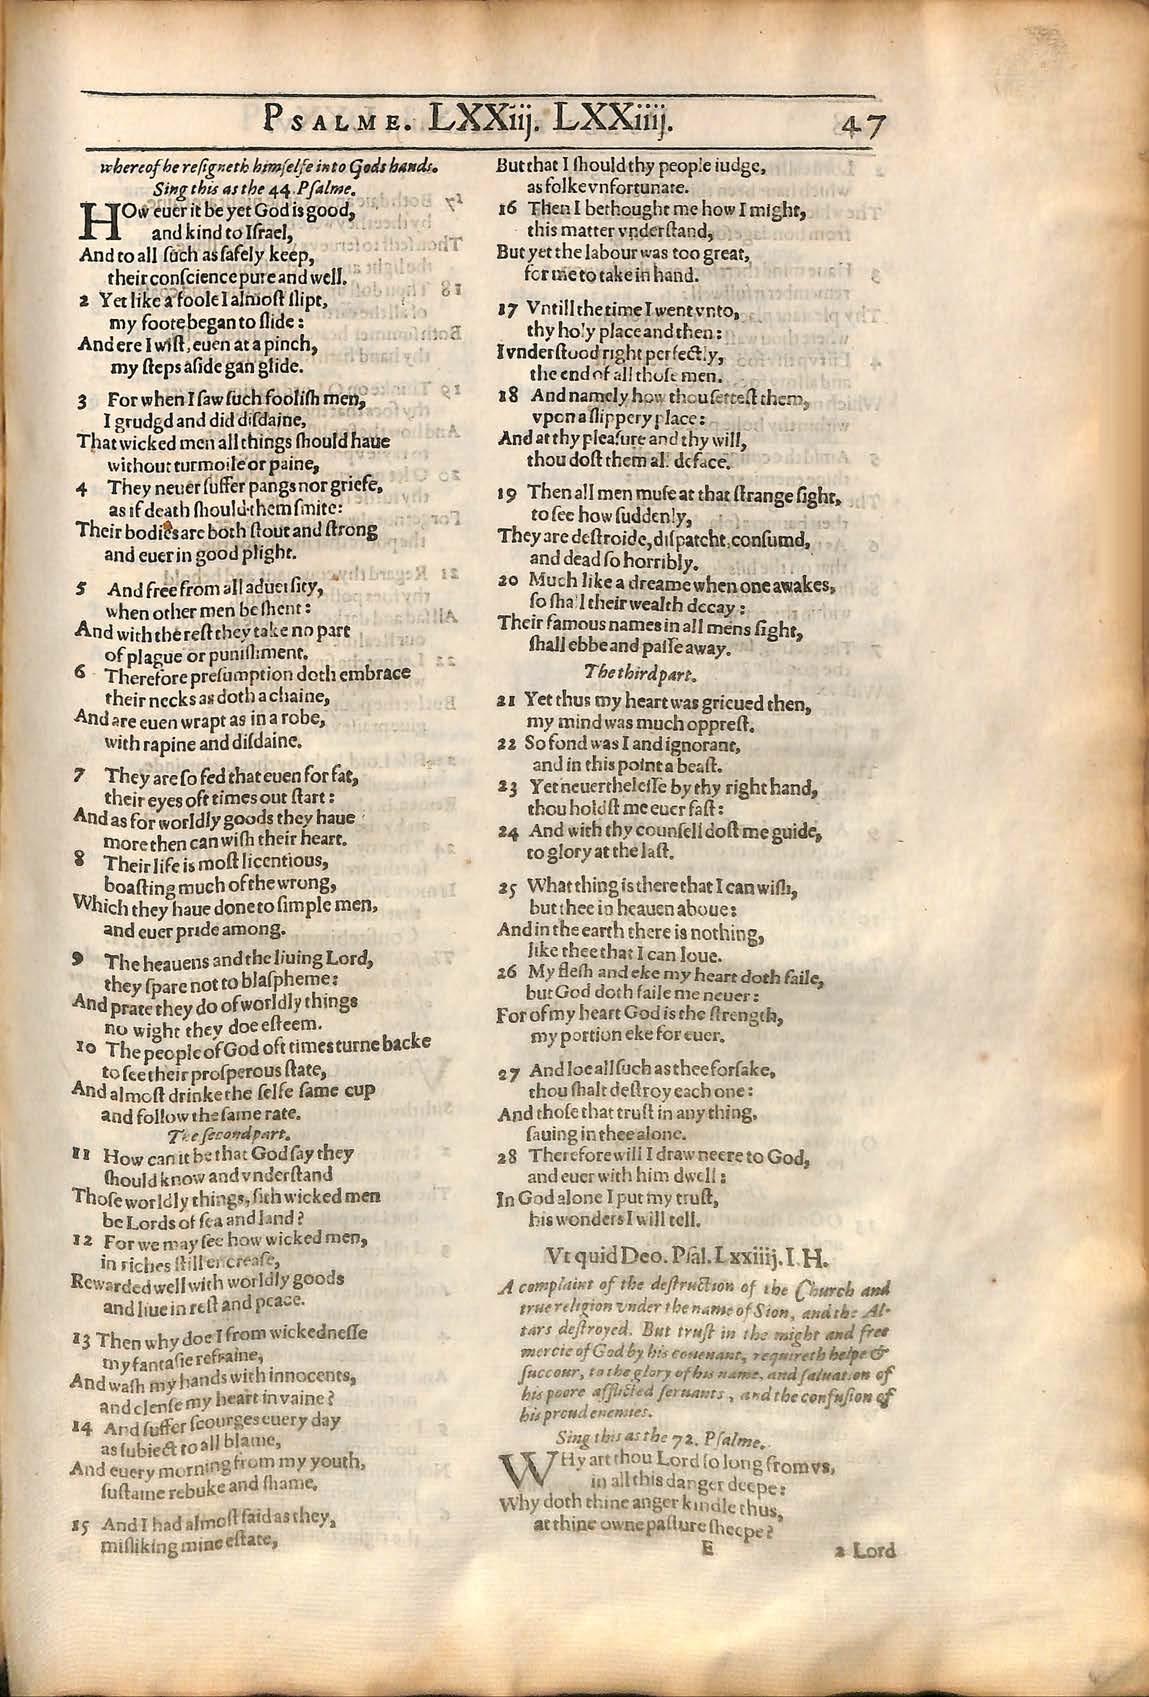 PSALME. LXXiij. LXXiiij. 47
whereof he resigneth himselfe into Gods hands.
Sing this as the 44. Psalme.
HOw euer it be yet God is good,
and kind to Israel,
And to all such as safely keep,
their conscience pure and well.
2 Yet like a foole I almost slipt,
my foote began to slide:
And ere I wist, euen at a pinch,
my steps aside gan glide.
3 For when I saw such foolish men,
I grudgd and did disdaine,
That wicked men all things should haue
without turmoile or paine,
4 They neuer suffer pangs nor griefe,
as if death should them smite:
Their bodies are both stout and strong
and euer in good plight.
5 And free from all aduersity,
when other men be shent:
And with the rest they take no part
of plague or punishment.
6 Therefore presumption doth embrace
their necks as doth a chaine,
And are euen wrapt as in a robe,
with rapine and disdaine.
7 They are so fed that euen for fat,
their eyes oft times out start:
And as for worldly goods they haue
more then can wish their heart.
8 Their life is most licentious,
boasting much of the wrong,
Which they haue done to simple men,
and euer pride among.
9 The heauens and the liuing Lord,
they spare not to blaspheme:
And prate they do of worldly things
no wight they doe esteem.
10 The people of God oft times turne backe
to see their prosperous state,
And almost drinke the selfe same cup
and follow the same rate.
The second part.
11 How can it be that God say they
should know and vnderstand
Those worldly things, sith wicked men
be Lords of sea and land?
12 For we may see how wicked men,
in riches still encrease,
Rewarded well with worldly goods
and liue in rest and peace.
13 Then why doe I from wickednesse
my fantasie refraine,
And wash my hands with innocents,
and clense my heart in vaine?
14 And suffer scourges euery day
as subiect to all blame,
And euery morning from my youth,
sustaine rebuke and shame.
15 And I had almost said as they,
misliking mine estate,
But that I should thy people iudge,
as folke vnfortunate.
16 Then I bethought me how I might,
this matter vnderstand,
But yet the labour was too great,
for me to take in hand.
17 Vntill the time I went vnto,
thy holy place and then:
I vnderstood right perfectly,
the end of all those men.
18 And namely how thou settest them,
vpon a slippery place:
And at thy pleasure and thy will,
thou dost them al. deface.
19 Then all men muse at that strange sight,
to see how suddenly,
They are destroide, dispatcht, consumd,
and dead so horribly.
20 Much like a dreame when one awakes,
so shall their wealth decay:
Their famous names in all mens sight,
shall ebbe and passe away.
The third part.
21 Yet thus my heart was grieued then,
my mind was much opprest.
22 So fond was I and ignorant,
and in this point a beast.
23 Yet neuerthelesse by thy right hand,
thou holdst me euer fast:
24 And with thy counsell dost me guide,
to glory at the last.
25 What thing is there that I can wish,
but thee in heauen aboue:
And in the earth there is nothing,
like thee that I can loue.
26 My flesh and eke my heart doth faile,
but God doth faile me neuer:
For of my heart God is the strength,
my portion eke for euer.
27 And loe all such as thee forsake,
thou shalt destroy each one:
And those that trust in any thing,
sauing in thee alone.
28 Therefore will I draw neere to God,
and euer with him dwell:
In God alone I put my trust,
his wonders I will tell.
Vt quid Deo. Psal. Lxxiiij. I. H.
A complaint of the destruction of the Church and
true religion vnder the name of Sion, and the Al-
tars destroyed. But trust in the might and free
mercie of God by his couenant, requireth helpe &
succour, to the glory of his name, and saluation of
his poore afflicted seruants, and the confusion of
his proud enemies.
Sing this as the 72. Psalme.
WHy art thou Lord so long from vs,
in all this danger deepe:
Why doth thine anger kindle thus,
at thine owne pasture sheepe?
E 2 Lord